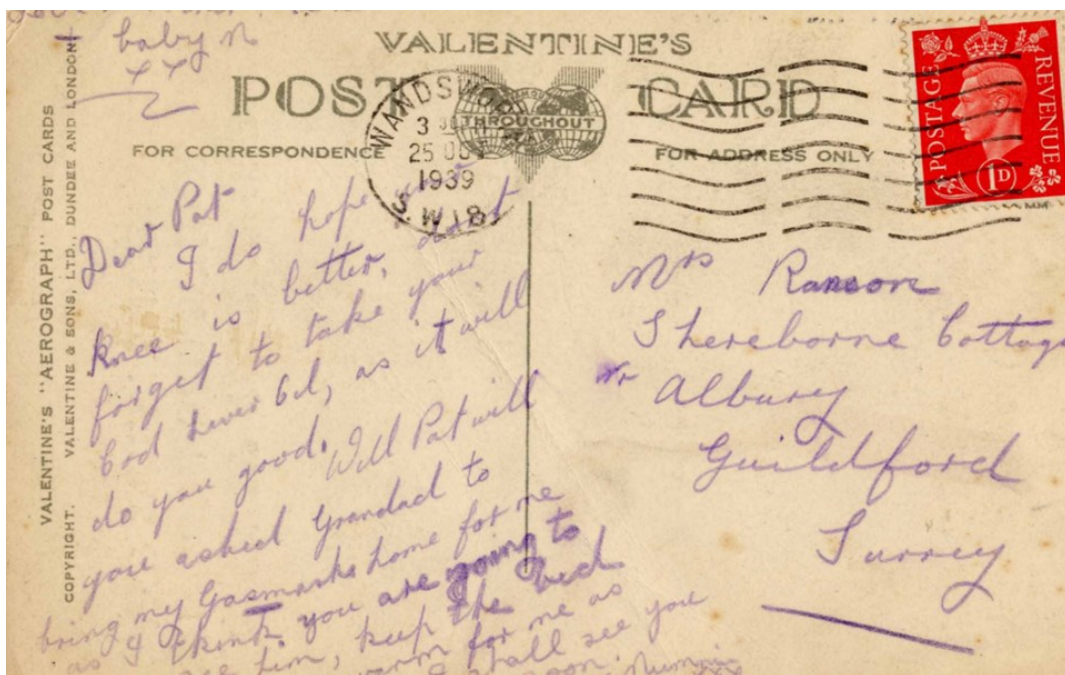 baby
x x
VALENTINE'S
POST CARD
THROUGHOUT
FOR CORRESPONDENCE
FOR ADDRESS ONLY
WANDSWOR
3
25
1939
S.W.18
POSTAGE REVENUE
1D
VALENTINE'S "AEROGRAPH" POST CARDS
COPYRIGHT. VALENTINE & SONS, LTD., DUNDEE AND LONDON
Dear Pat
I do hope your
knee is better, dont
forget to take your
Cod Liver Oil, as it will
do you good.
Will Pat will
you asked Grandad to
bring my Gasmaske home for me
as I think you are going to
see him, keep the bed
warm for me as
I shall see you
soon. Mummie
xxx
Mrs Ranson
Shereborne Cottage
nr Albury
Guildford
Surrey